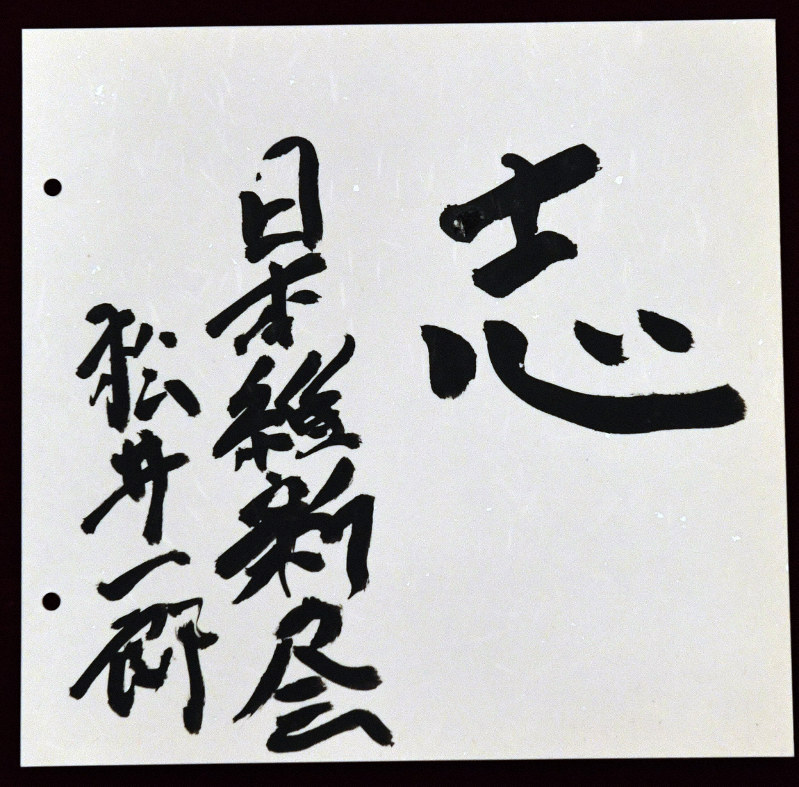 志
日本維新会
松井一郎